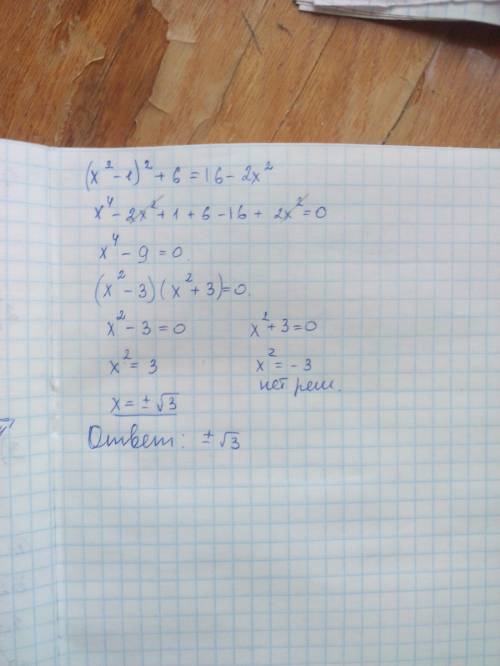 (x² - 1)² + 6 = 16 - 2x²
x⁴ - 2x² + 1 + 6 - 16 + 2x² = 0
x⁴ - 9 = 0.
(x² - 3)(x² + 3) = 0.
x² - 3 = 0 x² + 3 = 0
x² = 3 x² = - 3
нет реш.
x = ± √3
Ответ: ± √3